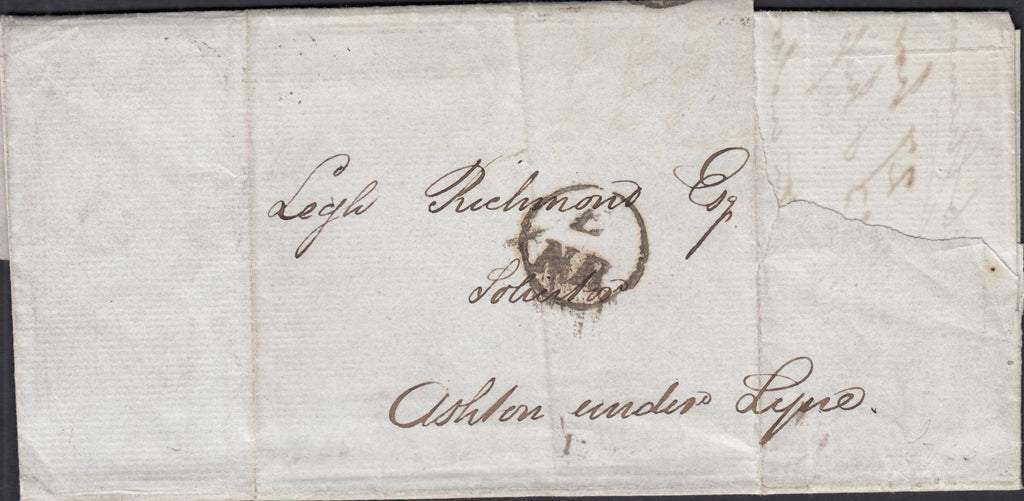 Legh Richmond Esq
Solicitor
Ashton under Lyne.